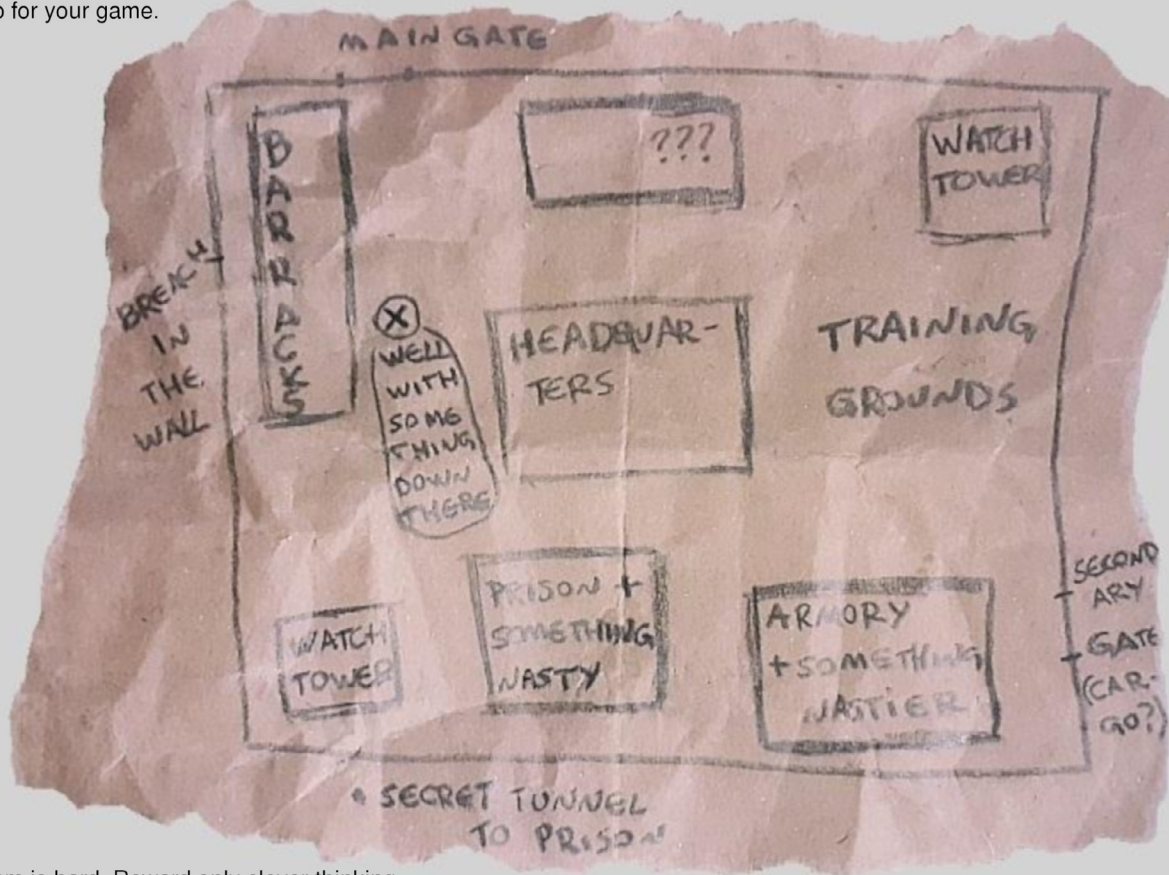 for your game.
MAIN GATE
BARRACKS
???
WATCH
TOWER
BREACH
IN
THE
WALL
X
WELL
WITH
SOME
THING
DOWN
THERE
HEADQUAR-
TERS
TRAINING
GROUNDS
WATCH
TOWER
PRISON +
SOMETHING
NASTY
ARMORY
+ SOMETHING
NASTIER
SECOND
ARY
GATE
(CAR-
GO?)
• SECRET TUNNEL
TO PRISON
is hard. Reward only clever thinking